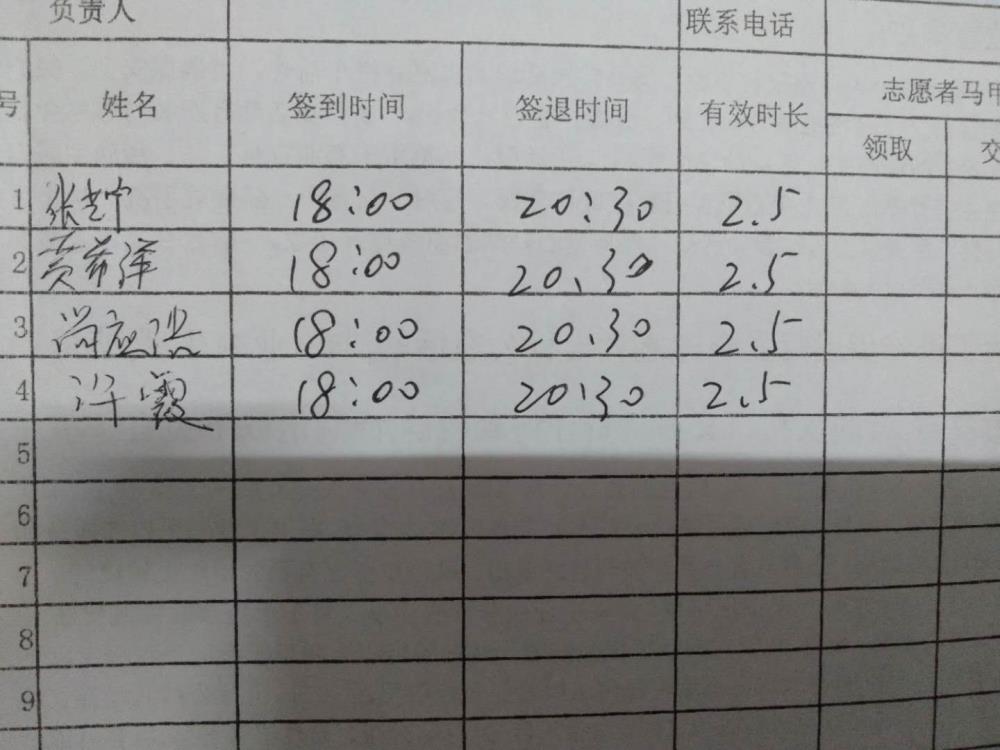 负责人 联系电话
号 姓名 签到时间 签退时间 有效时长 志愿者马甲
领取 交
1 18:00 20:30 2.5
2 贾希洋 18:00 20.30 2.5
3 尚应浩 18:00 20.30 2.5
4 汗霞 18:00 20:30 2.5
5
6
7
8
9